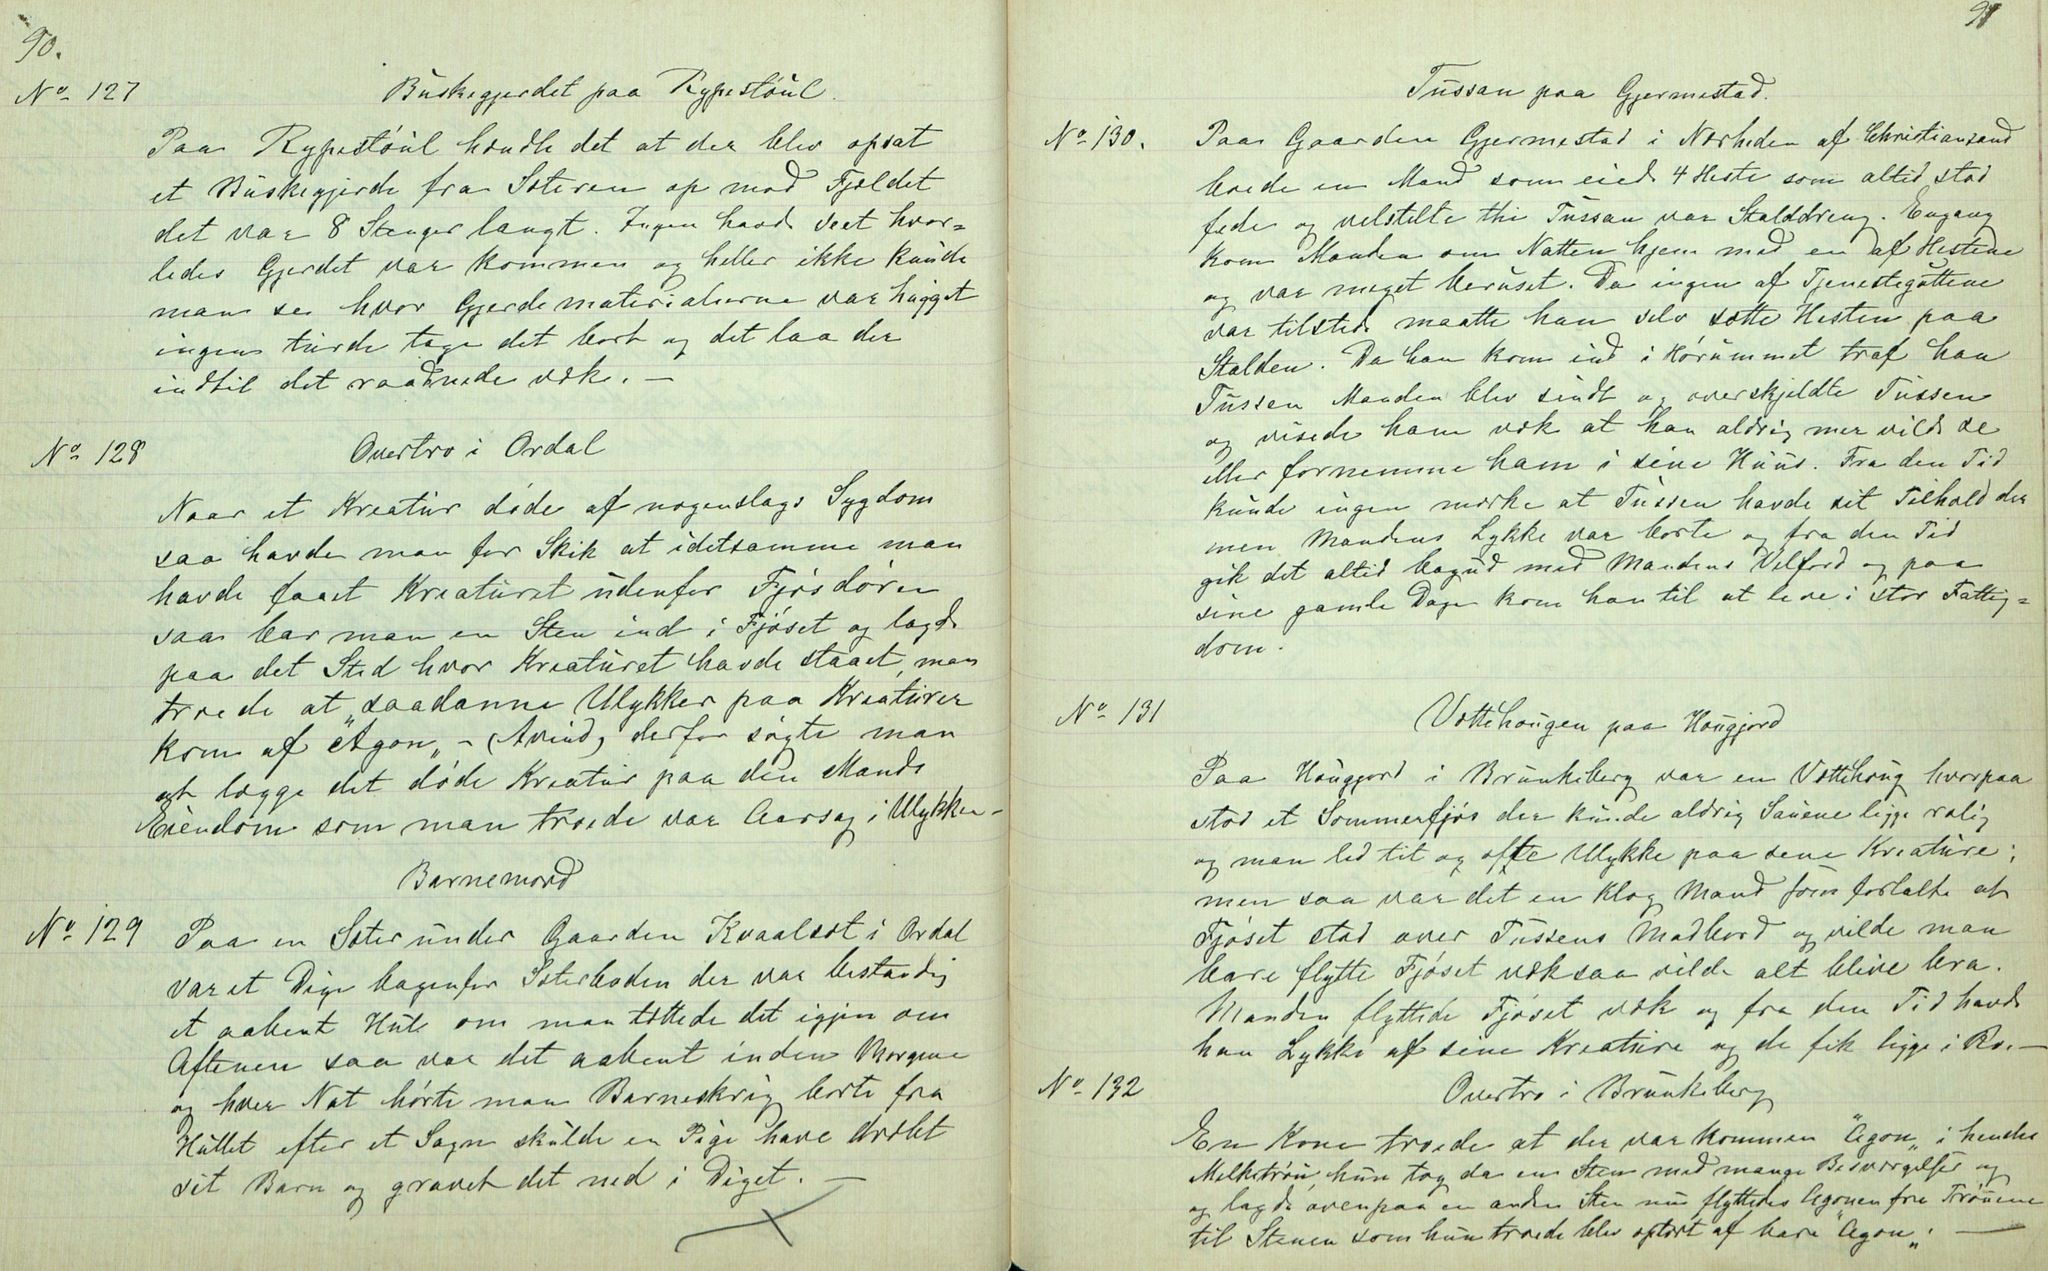 90.
No 127
Buskegjerdet paa Rypestöul.
Paa Rypestöul hændte det at der blev opsat
et Buskegjerde fra Sæteren op mod Fjeldet
det var 8 Stenger langt. Ingen havde seet hvor=
ledes Gjerdet var kommen og heller ikke kunde
man se hvor Gjerdematerialierne var hugget
ingen turde tage det bort og det laa der
indtil det raadnede væk. —
No 128
Overtro i Ordal
Naar et Kreatur döde af nogenslags Sygdom
saa havde man for Skik at idetsamme man
havde faaet Kreaturet udenfor Fjösdören
saa bar man en Sten ind i Fjöset og lagde
paa det Sted hvor Kreaturet havde staaet, man
troede at saadanne Ulykker paa Kreaturer
kom af "Agon„ – (Avind) derfor sögte man
at lægge det döde Kreatur paa den Mands
Eiendom som man troede var Aarsag i Ulykken –
Barnemord
No 129
Paa en Sæter under Gaarden Kvaalsot i Ordal
var et Dige bagenfor Sæterboden der var bestandig
et aabent Hul om man tættede det igjen om
Aftenen saa var det aabent inden Morgene
og hver Nat hörte man Barneskrig borte fra
Hullet efter et Sagn skulde en Pige have dræbt
sit Barn og gravet det ned i Diget. —
91
Tussan paa Gjermestad.
No 130.
Paa Gaarden Gjermestad i Nærheden af Christiansand
boede en Mand som eiede 4 Heste som altid stod
fede og velstelte thi Tussan var Stalddreng. Engang
kom Manden om Natten hjem med en af Hestene
og var meget beruset. Da ingen af Tjenestegutterne
var tilstede maatte han selv sætte Hesten paa
Stalden. Da han kom ind i Hörummet traf han
Tussen Manden blev sindt og overskjeldte Tussen
og viste ham væk at han aldrig mer vilde se
eller fornemme ham i sine Huus. Fra den Tid
kunde ingen mærke at Tussen havde sit Tilhold der
men Mandens Lykke var borte og fra den Tid
gik det altid bagud med Mandens Velferd og paa
sine gamle Dage kom han til at leve i stor Fattig=
dom.
No 131
Vættehougen paa Hougjord
Paa Hougjord i Brunkeberg var en Vættehoug hvorpaa
stod et Sommerfjös der kunde aldrig Sauene ligge rolig
og man led tit og ofte Ulykke paa sene Kreature;
men saa var det en klog Mand som fortalte at
Fjöset stod over Tussens Madbord og vilde man
bare flytte Fjöset væk saa vilde alt blive bra.
Manden flyttede Fjöset væk og fra den Tid havde
han Lykke af sine Kreature og de fik ligge i Ro. —
No 132
Overtro i Brunkeberg
En Kone troede at der var kommen "Agon„ i hendes
Melketröu, hun tog da en Sten med mange Besværgelser og
og lagde ovenpaa en anden Sten nu flyttedes Agonen fra Tröuene
til Stenen som hun troede blev optört af bare "Agon„. —